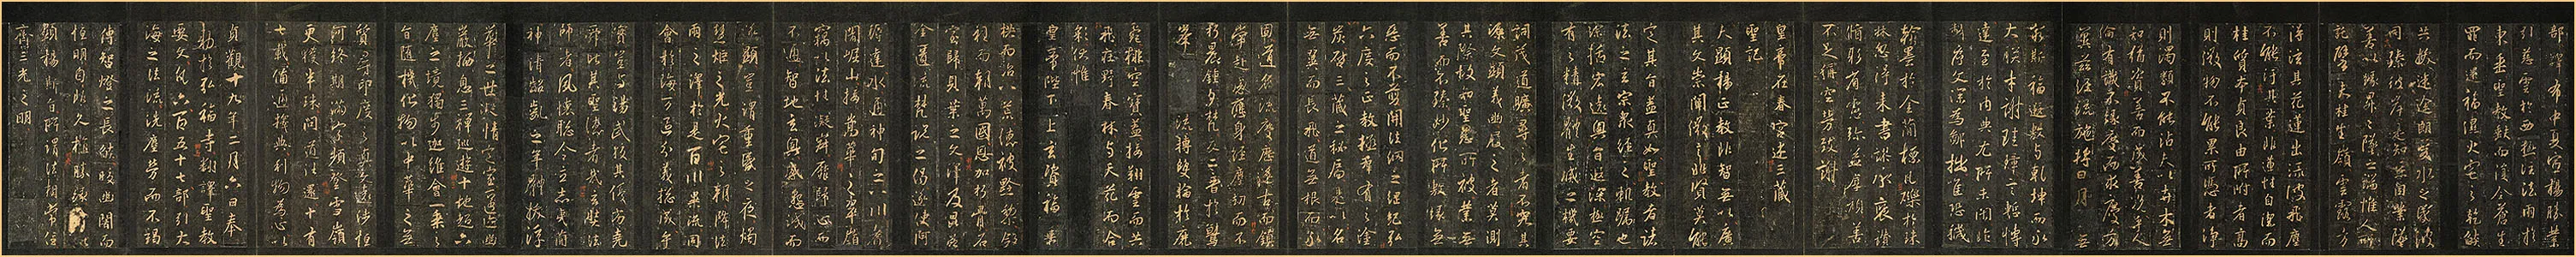 部譯布中夏宣揚勝業
引慈雲於西極注法雨於
東垂聖教缺而復全蒼生
罪而還福濕火宅之乾焰
共拔迷途朗愛水之昏波
同臻彼岸是知惡因業墜
善以緣昇昇墜之端惟人所
託譬夫桂生高嶺雲露方
得泫其花蓮出淥波飛塵
不能汙其葉非蓮性自潔而
桂質本貞良由所附者高
則微物不能累所憑者淨
則濁類不能沾夫以卉木無
知猶資善而成善況乎人
倫有識不緣慶而求慶方
冀茲經流施將日月而無
窮斯福遐敷與乾坤而永
大朕才謝珪璋言慚博
達至於內典尤所未閑昨
製序文深為鄙拙唯恐穢
翰墨於金簡標瓦礫於珠
林忽得來書謬承褒讚
循躬省慮彌益厚顏善
不足稱空勞致謝
皇帝在春宮述三藏
聖記
夫顯揚正教非智無以廣
其文崇闡微言非賢莫能
定其旨蓋真如聖教者諸
法之玄宗眾經之軌躅也
綜括宏遠奧旨遐深極空
有之精微體生滅之機要
詞茂道曠尋之者不究其
源文顯義幽履之者莫測
其際故知聖慈所被業無
善而不臻妙化所敷緣無
惡而不翦開法網之綱紀弘
六度之正教拯群有之塗
炭啟三藏之秘扃是以名
無翼而長飛道無根而永
固道名流慶歷遂古而鎮
常赴感應身經塵劫而不
朽晨鐘夕梵交二音於鷲
峯法流轉雙輪於鹿
菀排空寶蓋接翔雲而共
飛莊野春林與天花而合
彩伏惟
皇帝陛下上玄資福垂
拱而治八荒德被黔黎斂
衽而朝萬國恩加朽骨石
室歸貝葉之文澤及昆虫
金匱流梵說之偈遂使阿
耨達水通神甸之八川耆
闍崛山接嵩華之翠嶺
竊以法性凝寂靡歸心而
不通智地玄奧感懇誠而
遂顯豈謂重昏之夜燭
慧炬之光火宅之朝降法
雨之澤於是百川異流同
會於海萬區分義摠成乎
實豈與湯武校其優劣堯
舜比其聖德者哉玄奘法
師者夙懷聰令立志夷簡
神清齠齔之年體拔浮
華之世凝情定室匿跡幽
巖栖息三禪巡遊十地超六
塵之境獨步迦維會一乘之
旨隨機化物以中華之無
質尋印度之真文遠涉恒
河終期滿字頻登雪嶺
更獲半珠問道往還十有
七載備通釋典利物為心以
貞觀十九年二月六日奉
勅於弘福寺翻譯聖教
要文凡六百五十七部引大
海之法流洗塵勞而不竭
傳智燈之長焰皎幽闇而
恒明自非久植勝緣何以
顯揚斯旨所謂法相常住
齊三光之明